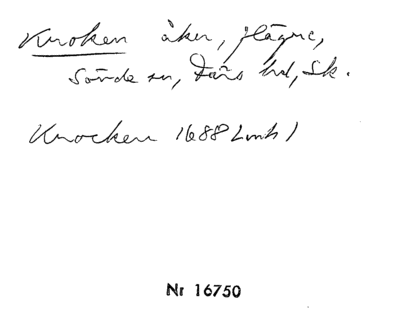 Kroken åker,
Sövde sn, Färs hd, Sk.
Krocken 1688
Nr 16750